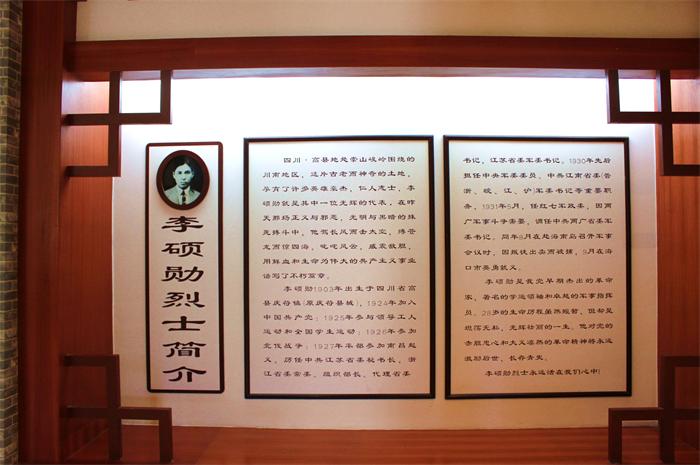 李硕勋烈士简介
四川·高县地处崇山峻岭围绕的
川南地区，这片古老而神奇的土地，
孕育了许多英雄豪杰，仁人志士，李
硕勋就是其中一位光辉的代表，在昨
天那场正义与邪恶，光明与黑暗的殊
死搏斗中，他驾长风而击太空，搏苍
龙而惊四海，叱咤风云，威震敌胆，
用鲜血和生命为伟大的共产主义事业
谱写了不朽篇章。
李硕勋1903年出生于四川省高
县庆符镇(原庆符县城)，1924年加入
中国共产党；1925年参与领导工人
运动和全国学生运动；1926年参加
北伐战争；1927年率部参加南昌起
义。历任中共江苏省委秘书长，浙
江省委常委，组织部长，代理省委
书记，江苏省委军委书记。1930年先后
担任中央军委委员，中共江南省委(皖
浙、皖、江、沪)军委书记等重要职
务，1931年5月，任红七军政委，因两
广军事斗争需要，调任中共两广省委军
委书记，同年8月在赴海南岛召开军事
会议时，因叛徒出卖而被捕，9月在海
口市英勇就义。
李硕勋是我党早期杰出的革命
家，著名的学运领袖和卓越的军事指挥
员。28岁的生命历程虽然短暂，但却是
坦荡无私，光辉壮丽的一生。他对党的
赤胆忠心和大义凛然的革命精神将永远
激励后世，长存青史。
李硕勋烈士永远活在我们心中!